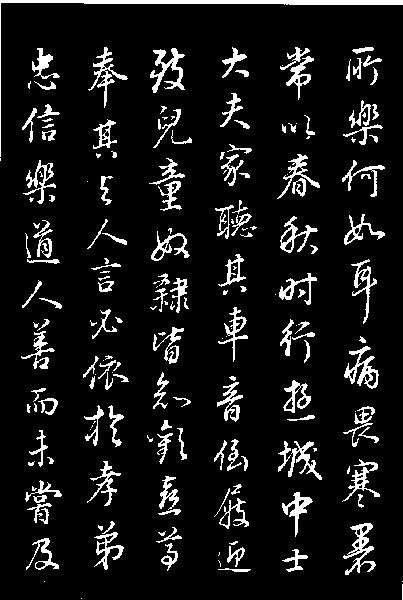 所樂何如耳病畏寒暑
常以春秋时行遊城中士
大夫家聽其車音倒屣迎
致兒童奴隸皆知歡喜尊
奉其与人言必依於孝弟
忠信樂道人善而未嘗及